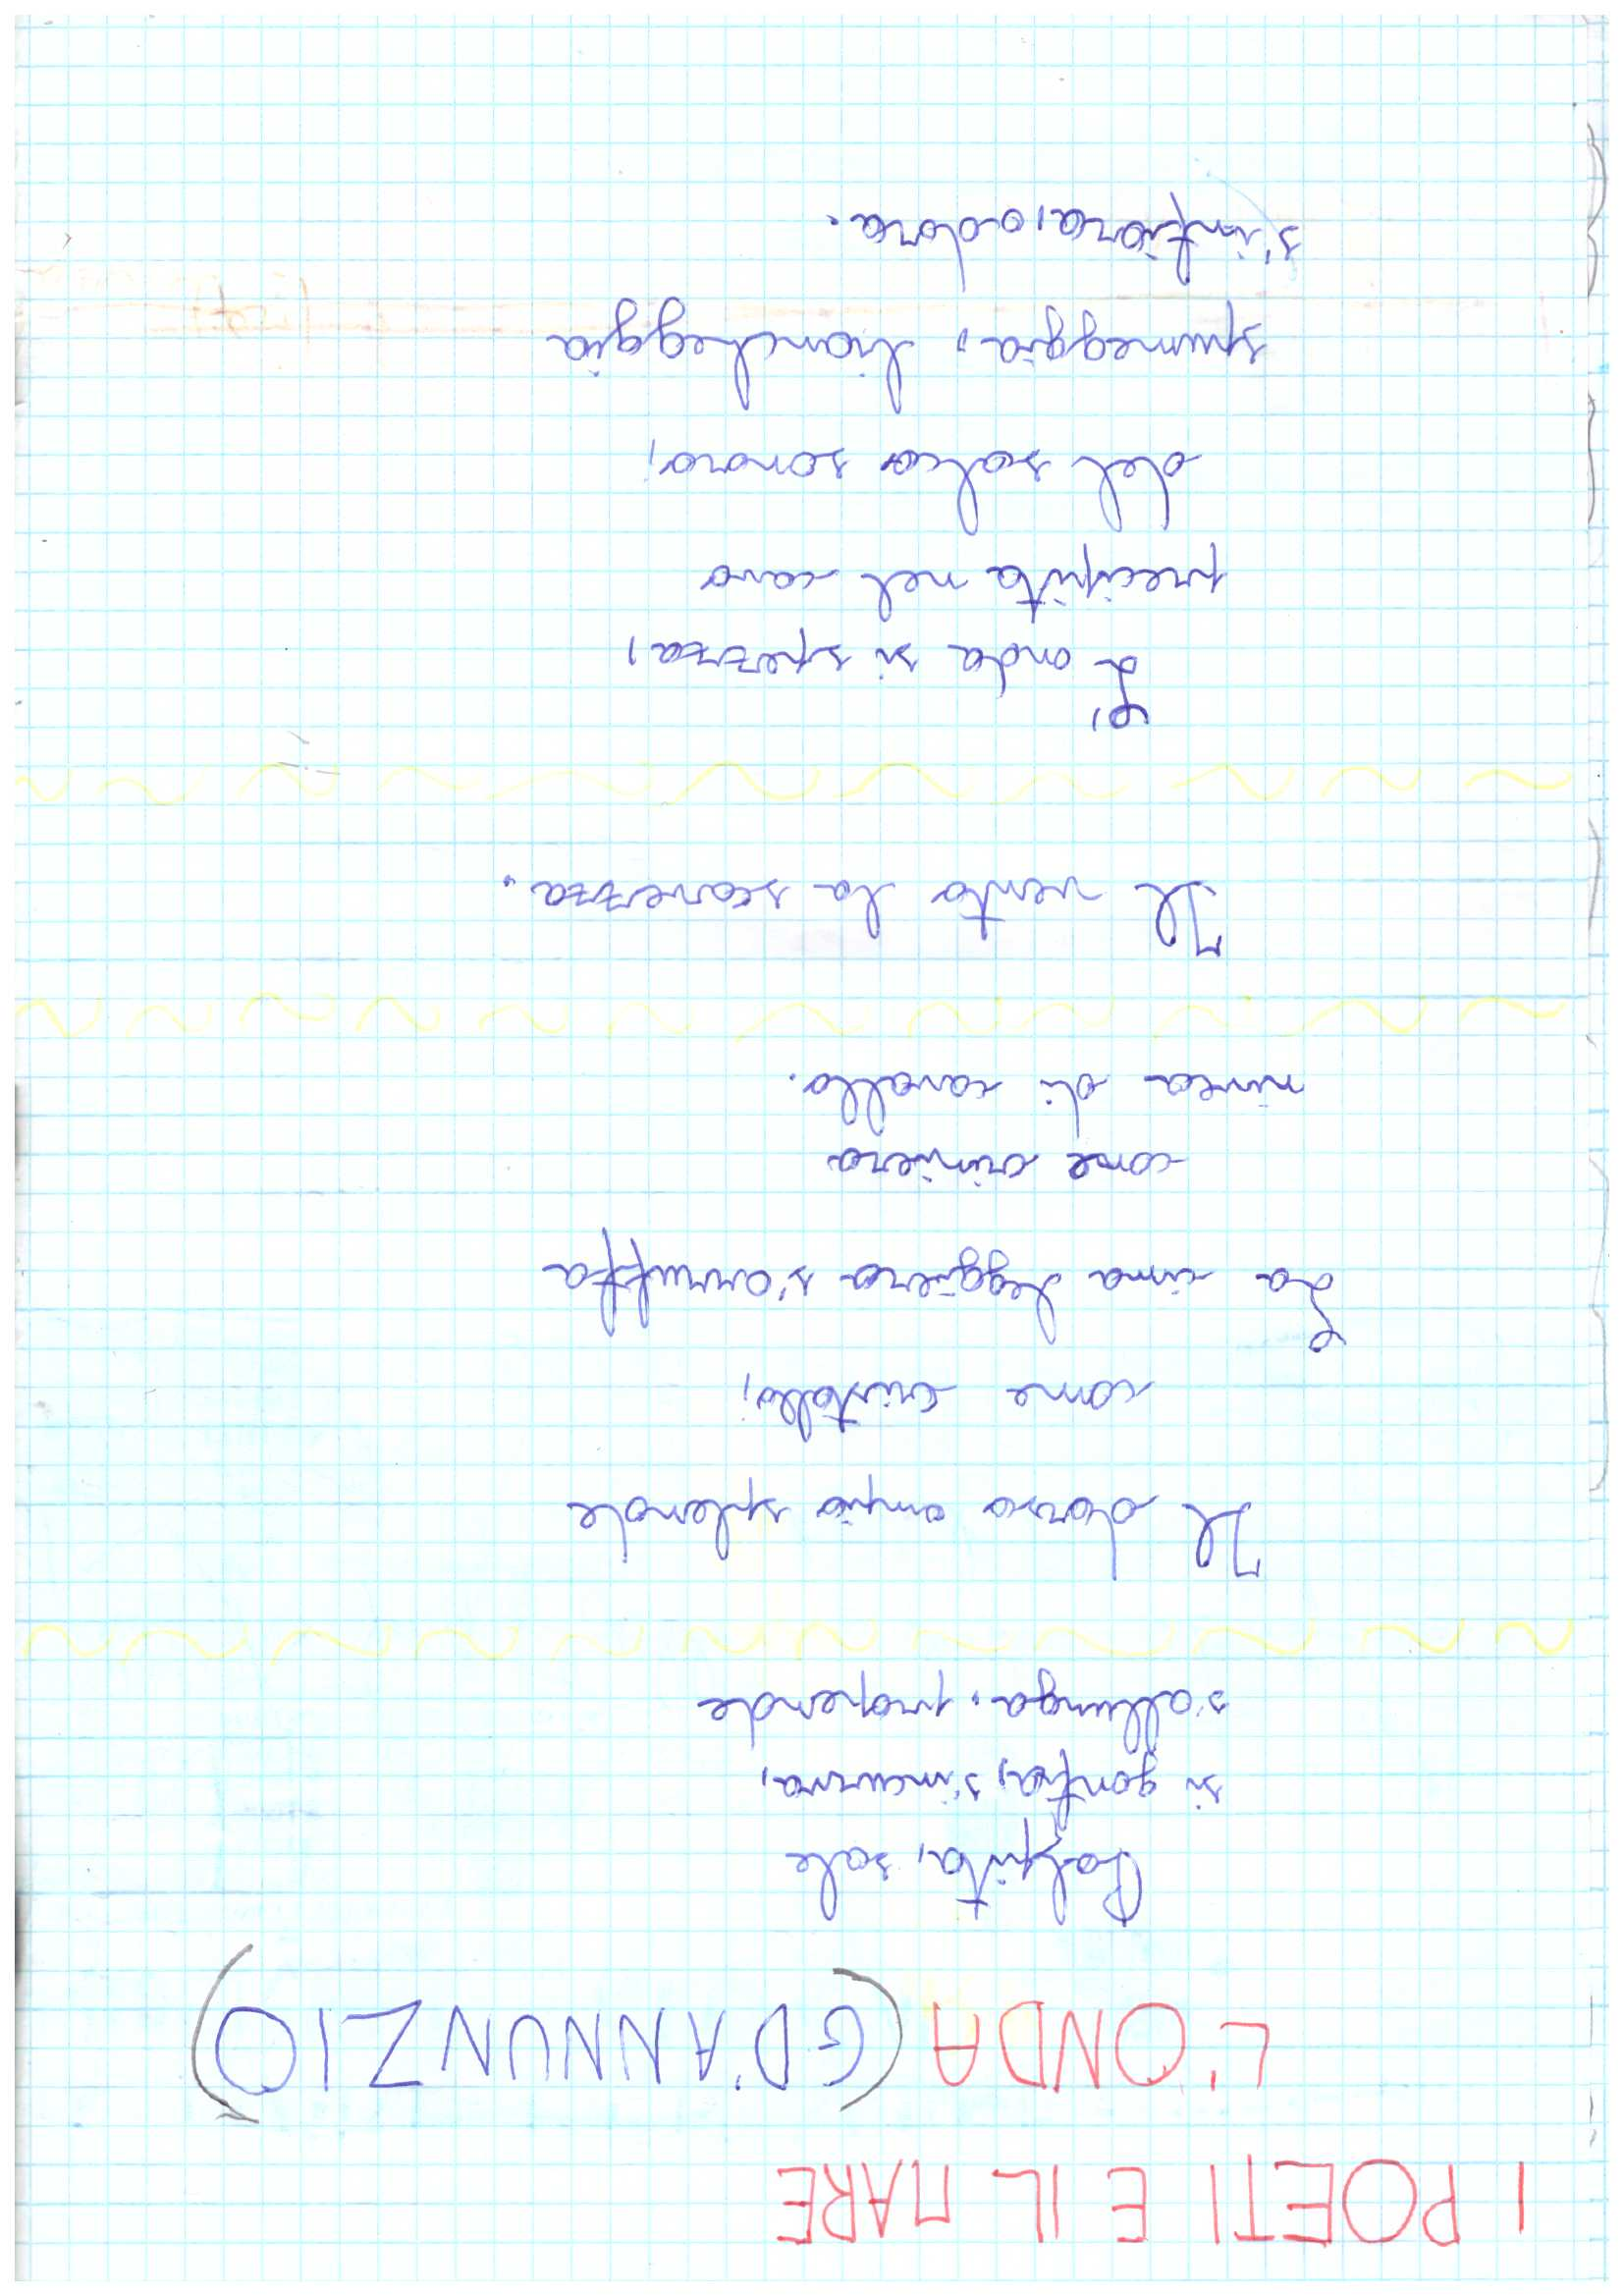 I POETI E IL MARE
L'ONDA (G D'ANNUNZIO)
Palpita, sale
si gonfia, s'incurva,
s'allunga, propende
Il dorso ampio splende
come cristallo;
La cima leggiera s'arruffa
come criniera
nivea di cavallo.
Il vento la scavezza.
L'onda si spezza,
precipita nel cavo
del solco sonoro;
spumeggia, biancheggia
s'infiora, odora.